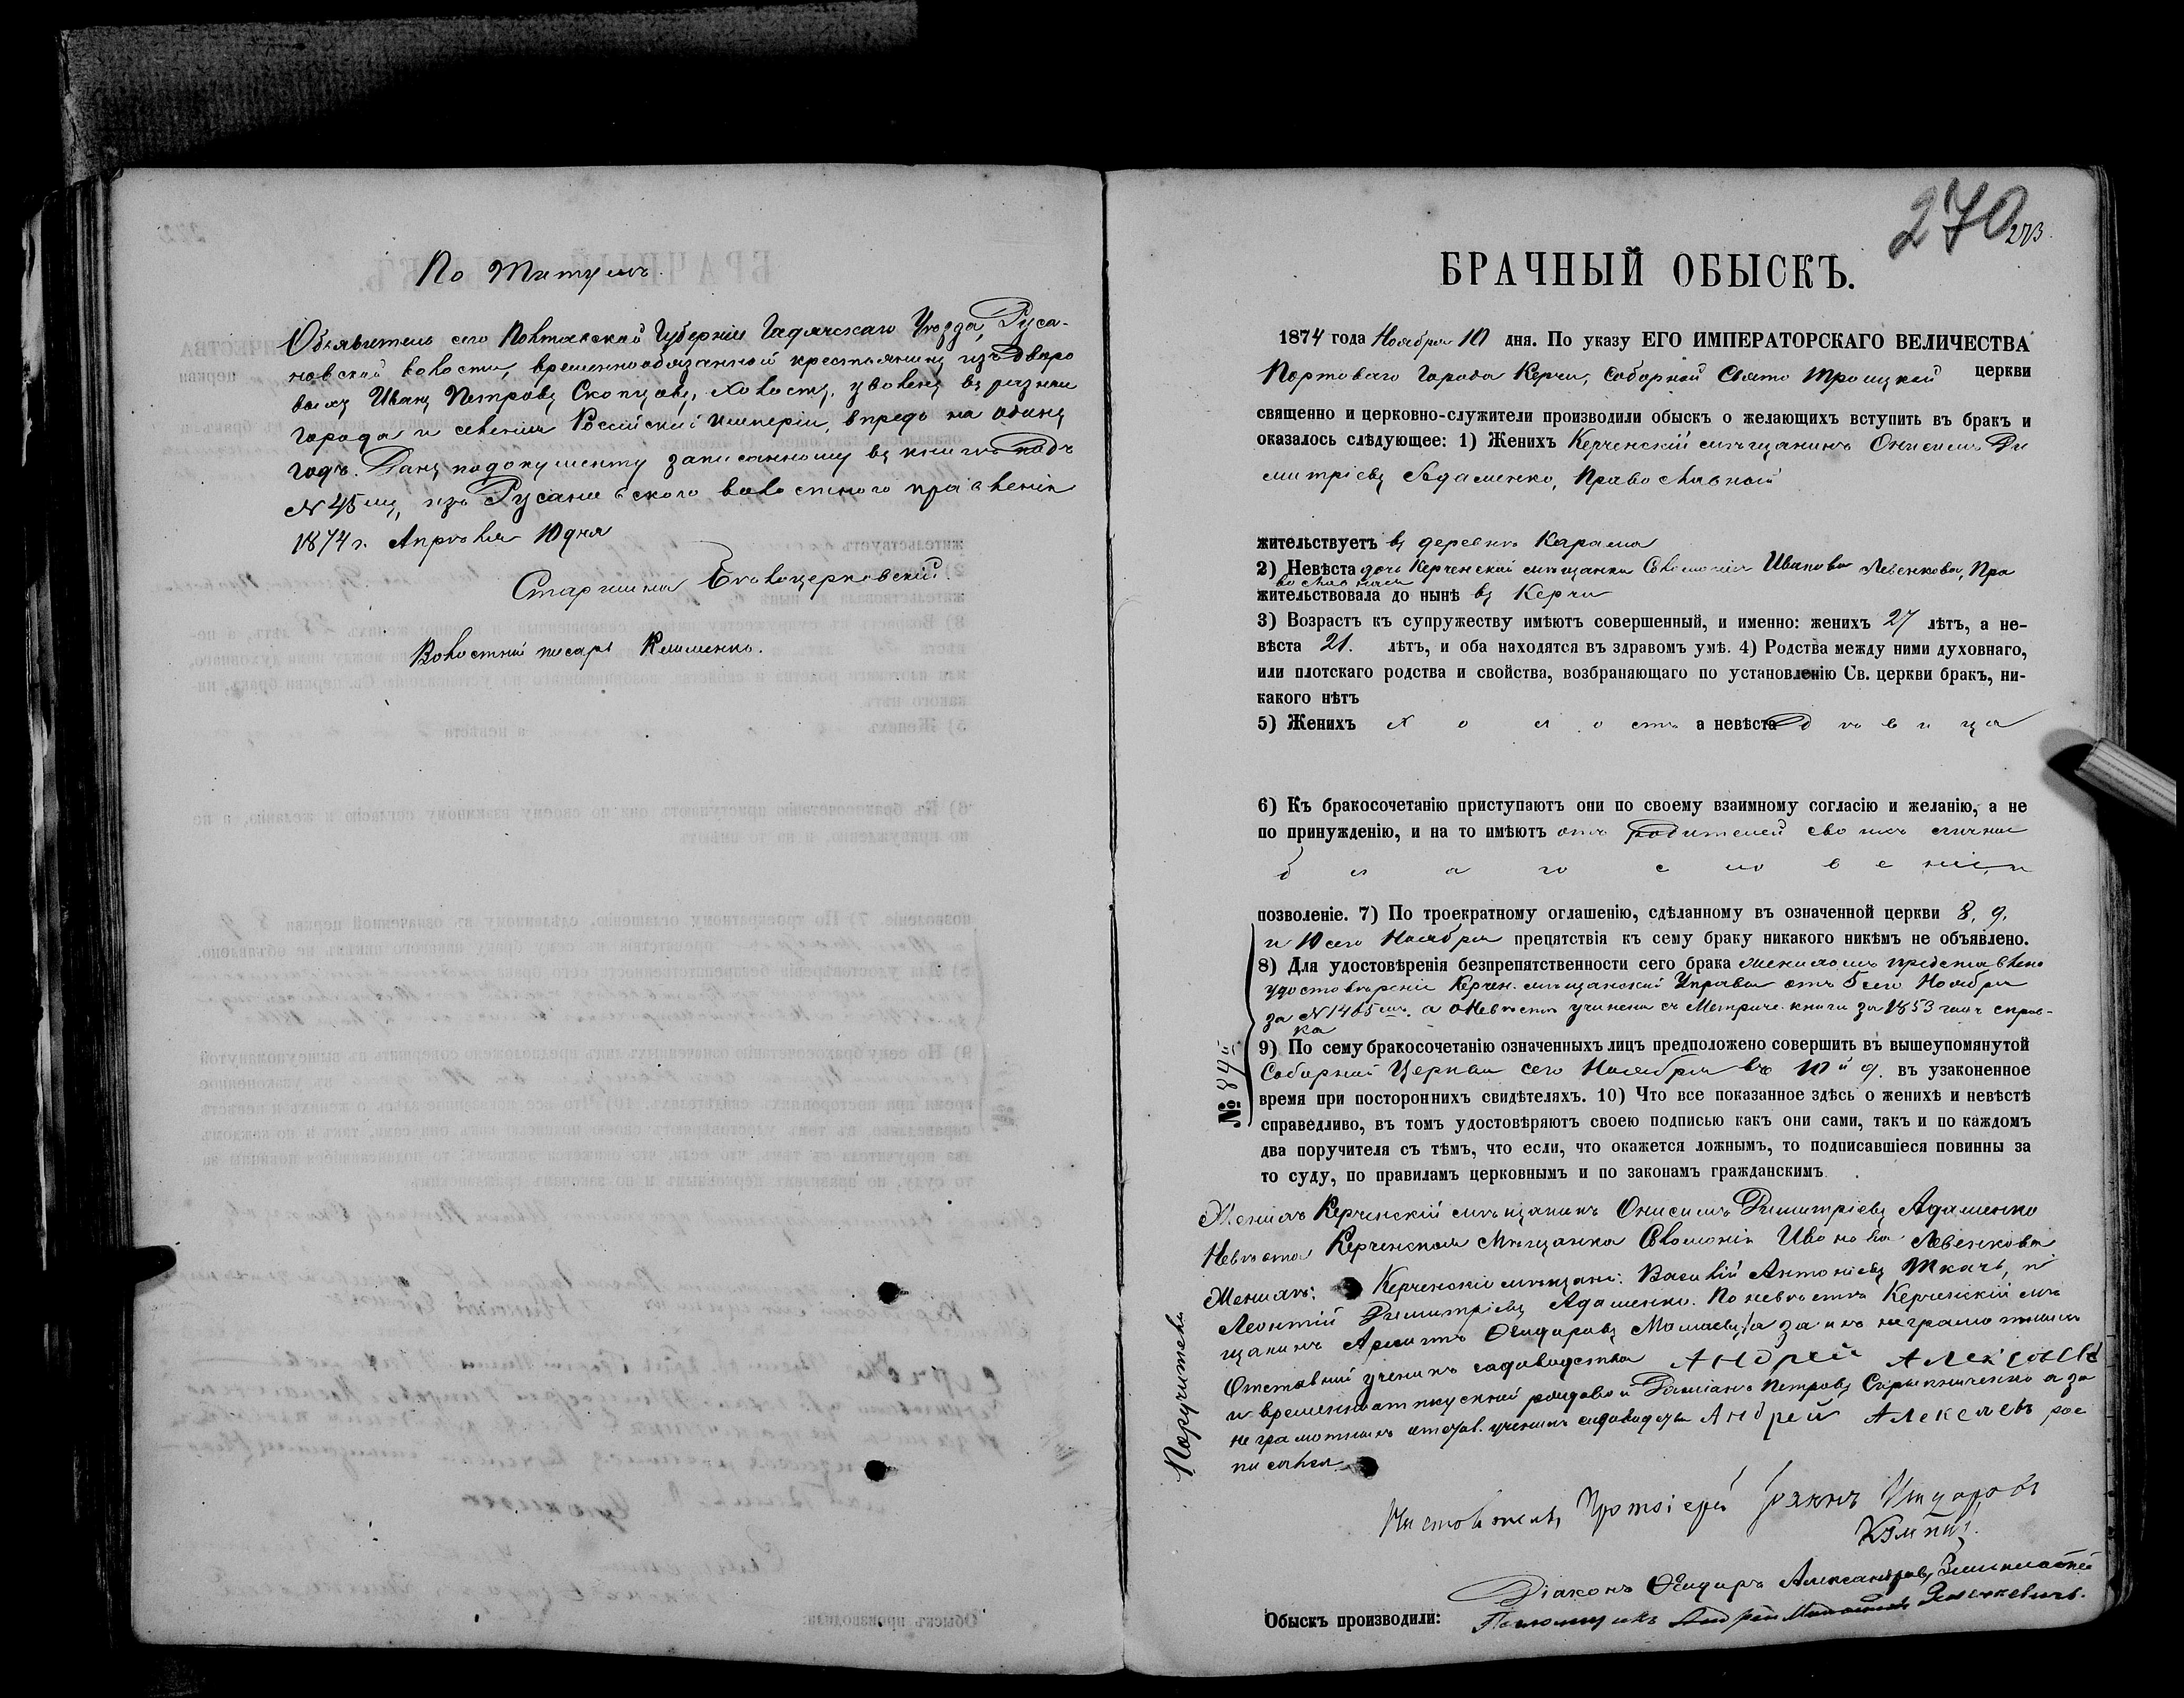 По Титулъ.
Объявитель сего Полтавской Губерніи Гадячскаго Уѣзда, Руса-
новской волости, временнообязанной крестьянинъ изъ дворо
выхъ Иванъ Петровъ Скопцовъ, холостъ, уволенъ въ разные
города и селенія Россійской имперіи, впредь на одинъ
годъ. Данъ подокументу записанному въ книгѣ подъ
№ 45мъ, изъ Русановского волостного правленія
1874 г. Апрѣля 10 дня
Старшина Бѣлоцерковскій.
Волостный писарь Клименко.
270
273
БРАЧНЫЙ ОБЫСКЪ.
1874 года Ноября 10 дня. По указу ЕГО ИМПЕРАТОРСКАГО ВЕЛИЧЕСТВА
Портоваго Города Керчи, Соборной Свято Троицкой церкви
священно и церковно-служители производили обыскъ о желающихъ вступить въ бракъ и
оказалось слѣдующее: 1) Женихъ Керченскій мѣщанинъ Онисимъ Ди
митріевъ Адаменко, Православной
жительствуетъ въ деревнѣ
2) Невѣста дочь Керченской мѣщанки Соломонія Иванова Левенкова, Пра
вославная
жительствовала до нынѣ въ Керчи
3) Возрастъ къ супружеству имѣютъ совершенный, и именно: женихъ 27 лѣтъ, а не-
вѣста 21. лѣтъ, и оба находятся въ здравомъ умѣ. 4) Родства между ними духовнаго,
или плотскаго родства и свойства, возбраняющаго по установленію Св. церкви бракъ, ни-
какого нѣтъ
5) Женихъ холостъ а невѣста дѣвица
6) Къ бракосочетанію приступаютъ они по своему взаимному согласію и желанію, а не
по принужденію, и на то имѣютъ отъ родителей своихъ личное
благословеніе
позволеніе. 7) По троекратному оглашенію, сдѣланному въ означенной церкви 8, 9,
и 10 сего Ноября препятствія къ сему браку никакого никѣмъ не объявлено.
8) Для удостовѣренія безпрепятственности сего брака женихомъ представлено
удостовѣреніе Керчен. мѣщанской Управы отъ 5 сего Ноября
за № 1405мъ. а о Невѣстѣ учинена съ Метриче. книги за 1853 годъ справ-
ка
9) По сему бракосочетанію означенныхъ лицъ предположено совершить въ вышеупомянутой
Соборной Церкви сего Ноября въ 10й д. въ узаконенное
время при постороннихъ свидѣтеляхъ. 10) Что все показанное здѣсь о женихѣ и невѣстѣ
справедливо, въ томъ удостовѣряютъ своею подписью какъ они сами, такъ и по каждомъ
два поручителя съ тѣмъ, что если, что окажется ложнымъ, то подписавшіеся повинны за
то суду, по правиламъ церковнымъ и по законамъ гражданскимъ
№ 84й
Женихъ Керченскій мѣщанинъ Онисимъ Димитріевъ Адаменко
Невѣста Керченская Мѣщанка Соломонія Иванова Левенкова
Поручители
Женихъ: Керченскіе мѣщане: Василій Антоніевъ Ткачь, и
Леонтій Димитріевъ Адаменко. По невѣстѣ Керченскій мѣ
щанинъ за ихъ неграмотныхъ
Отставный ученикъ садоводства Андрей Алексѣевъ
и временноотпускной рядовой Даміанъ Петровъ а за
неграмотныхъ отстав. ученикъ садоводства Андрей Алексѣевъ рос
писался
Протоіерей Іоаннъ
Діаконъ Ѳеодоръ Александровъ
Обыскъ производили: Андрей